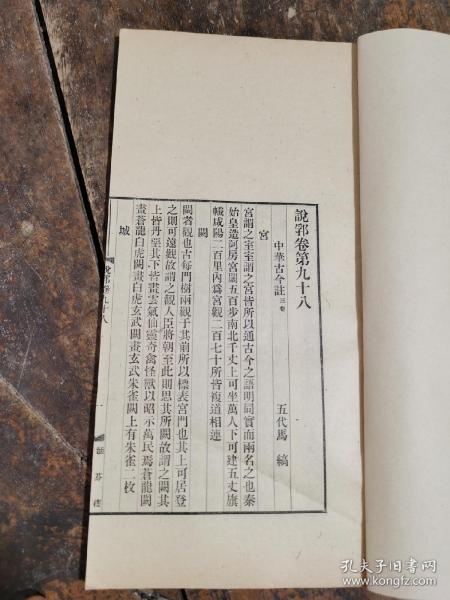 說郛卷第九十八
中華古今註 三卷
五代馬縞
宮
宮謂之室室謂之宮皆所以通古今之語明同實而兩名之也秦
始皇造阿房宮闕五百步南北千丈上可坐萬人下可建五丈旗
幟咸陽二百里內爲宮觀二百七十所皆複道相連
闕
闕者觀也古每門樹兩觀于其前所以標表宮門也其上可居登
之則可遠觀故謂之觀人臣將朝至此則思其所闕故謂之闕其
上皆丹堊其下皆畫雲氣仙靈奇禽怪獸以昭示萬民焉蒼龍闕
畫蒼龍白虎闕畫白虎玄武闕畫玄武朱雀闕上有朱雀二枚
城
說郛卷九十八
一
涵芬樓
孔夫子旧书网